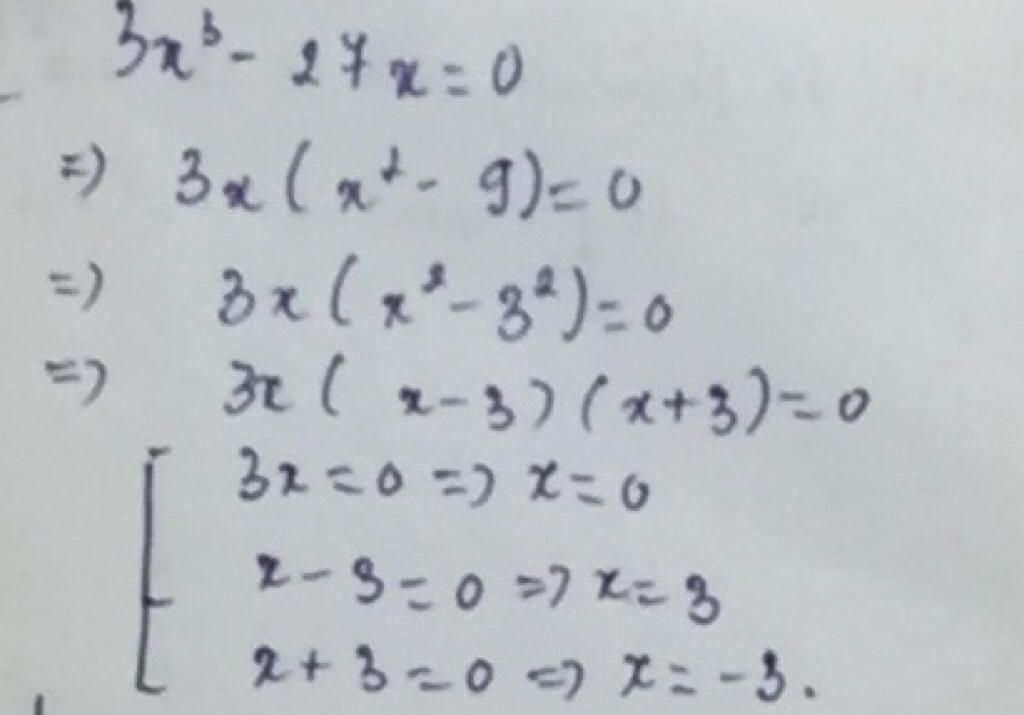 3x³ - 27x = 0
=> 3x ( x² - 9) = 0
=> 3x ( x² - 3²) = 0
=> 3x ( x - 3 ) ( x + 3) = 0
3x = 0 => x = 0
x - 3 = 0 => x = 3
x + 3 = 0 => x = -3.